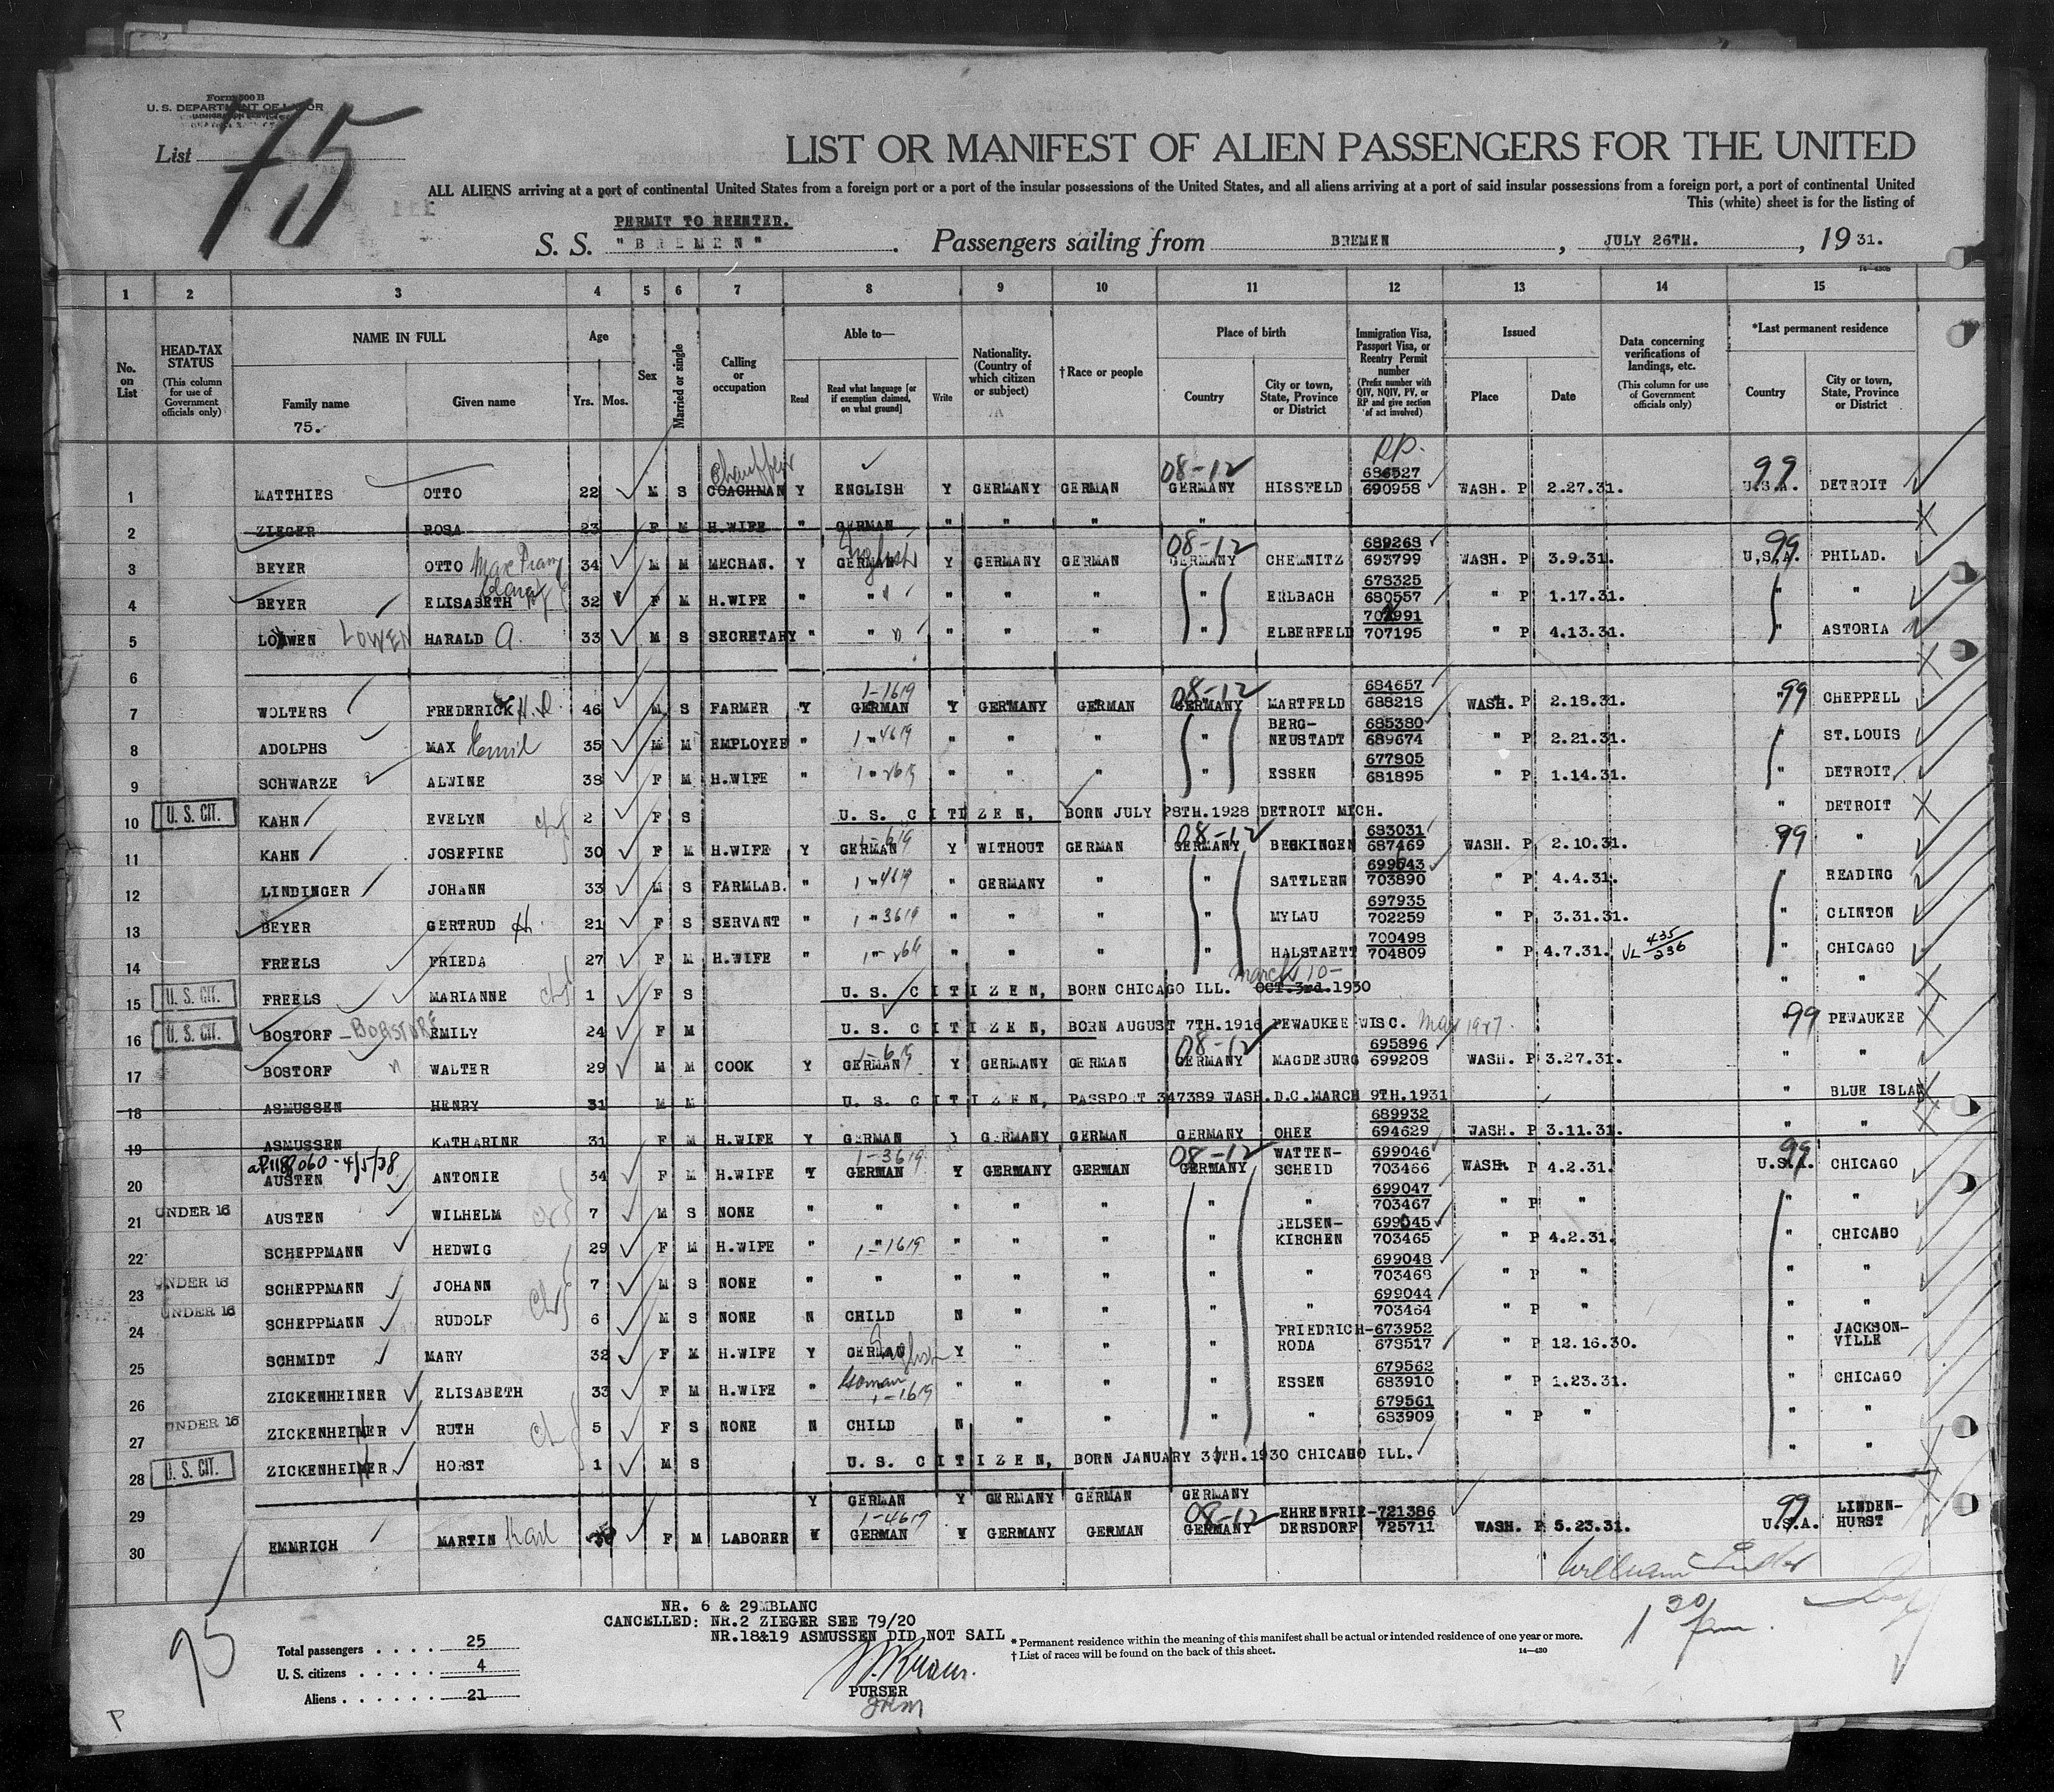 Form 500 B
U. S. DEPARTMENT OF LABOR
IMMIGRATION SERVICE
List 75
LIST OR MANIFEST OF ALIEN PASSENGERS FOR THE UNITED
ALL ALIENS arriving at a port of continental United States from a foreign port or a port of the insular possessions of the United States, and all aliens arriving at a port of said insular possessions from a foreign port, a port of continental United
This (white) sheet is for the listing of
PERMIT TO REENTER.
S. S. "BREMEN". Passengers sailing from BREMEN, JULY 26TH., 1931.
14-430b
1 2 3 4 5 6 7 8 9 10 11 12 13 14 15
No. on List
HEAD-TAX STATUS (This column for use of Government officials only)
NAME IN FULL
Family name
Given name
75.
Age
Yrs. Mos.
Sex
Married or single
Calling or occupation
Able to—
Read
Read what language [or if exemption claimed, on what ground]
Write
Nationality. (Country of which citizen or subject)
† Race or people
Place of birth
Country
City or town, State, Province or District
Immigration Visa, Passport Visa, or Reentry Permit number (Prefix number with QIV, NQIV, PV, or RP and give section of act involved)
Issued
Place
Date
Data concerning verifications of landings, etc. (This column for use of Government officials only)
*Last permanent residence
Country
City or town, State, Province or District
RP.
1 MATTHIES OTTO 22 M S COACHMAN Chauffeur Y ENGLISH Y GERMANY GERMAN 08-12 GERMANY HISSFELD 686527 690958 WASH. P 2.27.31. 99 U.S.A. DETROIT
2 ZIEGER ROSA 23 F M H.WIFE " GERMAN " " " "
3 BEYER OTTO Max 34 M M MECHAN. Y GERMAN English Y GERMANY GERMAN 08-12 GERMANY CHEMNITZ 689268 693799 WASH. P 3.9.31. 99 U.S.A. PHILAD.
4 BEYER ELISABETH Clara 32 F M H.WIFE " " " " " " ERLBACH 678325 680557 " P 1.17.31. " "
5 LOEWEN LOWEN HARALD A. 33 M S SECRETARY " " " " " " ELBERFELD 707195 " P 4.13.31. " ASTORIA
6
7 WOLTERS FREDERICK H. D. 46 M S FARMER Y 1-1619 GERMAN Y GERMANY GERMAN 08-12 GERMANY MARTFELD 684657 688218 WASH. P 2.18.31. " 99 CHEPPELL
8 ADOLPHS MAX Emil 35 M M EMPLOYEE " 1-4619 " " " " BERG-NEUSTADT 685380 689674 " P 2.21.31. " ST.LOUIS
9 SCHWARZE ALWINE 38 F M H.WIFE " 1-2619 " " " " ESSEN 677805 681895 " P 1.14.31. " DETROIT
10 U. S. CIT. KAHN EVELYN ch 2 F S U. S. CITIZEN, BORN JULY 28TH.1928 DETROIT MICH. " DETROIT
11 KAHN JOSEFINE 30 F M H.WIFE Y 1-619 GERMAN Y WITHOUT GERMAN 08-12 GERMANY BECKINGEN 683031 687469 WASH. P 2.10.31. 99 "
12 LINDINGER JOHANN 33 M S FARMLAB. " 1-4619 " GERMANY " " SATTLERN 699643 703890 " P 4.4.31. READING
13 BEYER GERTRUD H. 21 F S SERVANT " 1-3619 " " " " MYLAU 697935 702259 " P 3.31.31. " CLINTON
14 FREELS FRIEDA 27 F M H.WIFE " " " " " HALSTAETT 700498 704809 " P 4.7.31. VL 435/236 " CHICAGO
15 U. S. CIT. FREELS MARIANNE ch 1 F S U. S. CITIZEN, BORN CHICAGO ILL. OCT.3rd.1930 March 10- " "
16 U. S. CIT. BOSTORF EMILY 24 F M U. S. CITIZEN, BORN AUGUST 7TH.1916 PEWAUKEE WISC. May 1927. 99 PEWAUKEE
17 BOSTORF " WALTER 29 M M COOK Y 1-619 GERMAN Y GERMANY GERMAN 08-12 GERMANY MAGDEBURG 695896 699208 WASH. P 3.27.31. " "
18 ASMUSSEN HENRY 31 M M U. S. CITIZEN, PASSPORT 347389 WASH.D.C.MARCH 9TH.1931 " BLUE ISLAN
19 ASMUSSEN KATHARINE 31 F M H.WIFE Y GERMAN Y GERMANY GERMAN GERMANY OHEE 689932 694629 WASH. P 3.11.31. " "
20 AUSTEN ANTONIE 34 F M H.WIFE Y 1-3619 GERMAN Y GERMANY GERMAN 08-12 GERMANY WATTEN-SCHEID 699046 703466 WASH. P 4.2.31. 99 U.S.A. CHICAGO
21 UNDER 16 AUSTEN WILHELM 7 M S NONE " " " " " " " 699047 703467 " P " " "
22 SCHEPPMANN HEDWIG 29 F M H.WIFE " " 1-1619 " " " " GELSEN-KIRCHEN 699045 703465 " P 4.2.31. " CHICAGO
23 UNDER 16 SCHEPPMANN JOHANN 7 M S NONE " " " " " " " 699048 703468 " P " " "
24 UNDER 16 SCHEPPMANN RUDOLF ch 6 M S NONE N CHILD N " " " " 699044 703464 " P " " "
25 SCHMIDT MARY 32 F M H.WIFE Y GERMAN English Y " " " FRIEDRICH-RODA 673952 678517 " P 12.16.30. " JACKSON-VILLE
26 ZICKENHEINER ELISABETH 33 F M H.WIFE " German 1-1619 " " " " ESSEN 679562 683910 " P 1.23.31. " CHICAGO
27 UNDER 16 ZICKENHEINER RUTH ch 5 F S NONE N CHILD N " " " " 679561 683909 " P " " "
28 U. S. CIT. ZICKENHEINER HORST 1 M S U. S. CITIZEN, BORN JANUARY 30TH.1930 CHICAGO ILL. " "
29 Y GERMAN Y GERMANY GERMAN GERMANY
30 EMMRICH MARTIN Karl F M LABORER Y 1-4619 GERMAN Y GERMANY GERMAN 08-12 GERMANY EHRENFRIE-DERSDORF 721386 725711 WASH. P 5.23.31. 99 U.S.A. LINDEN-HURST
NR. 6 & 29 BLANC
CANCELLED: NR.2 ZIEGER SEE 79/20
NR.18&19 ASMUSSEN DID NOT SAIL
Total passengers . . . . 25
U. S. citizens . . . . . 4
Aliens . . . . . . 21
PURSER
* Permanent residence within the meaning of this manifest shall be actual or intended residence of one year or more.
† List of races will be found on the back of this sheet.
14-430
1 30 pm.
95
P